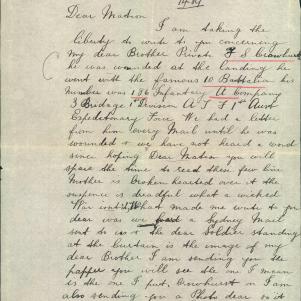 Dear Matron
I am taking the
liberty to write to you concerning
my dear Brother Private F S Crowhurst
he was wounded at the Landing he
went with the famous 10 Battalion his
Number was 136 Infantry A Company
3 Bridage 1st Division A I F 1st Aust
Expeditionary Force We had a letter
from him every Mail until he was
wounded & we have not heard a word
since hoping Dear Matron you will
spare the time to read these few lines
Mother is broken hearted over it the
suspence is dreadful what a wicked
War What made me write to you
dear was we a Sydney Mail
sent to us & the dear Soldier standing
at the Curtain is the image of my
dear Brother I am sending you the
papper you will see the one I mean
is the one I put Crowhurst on I am
also sending you a Photo dear is it